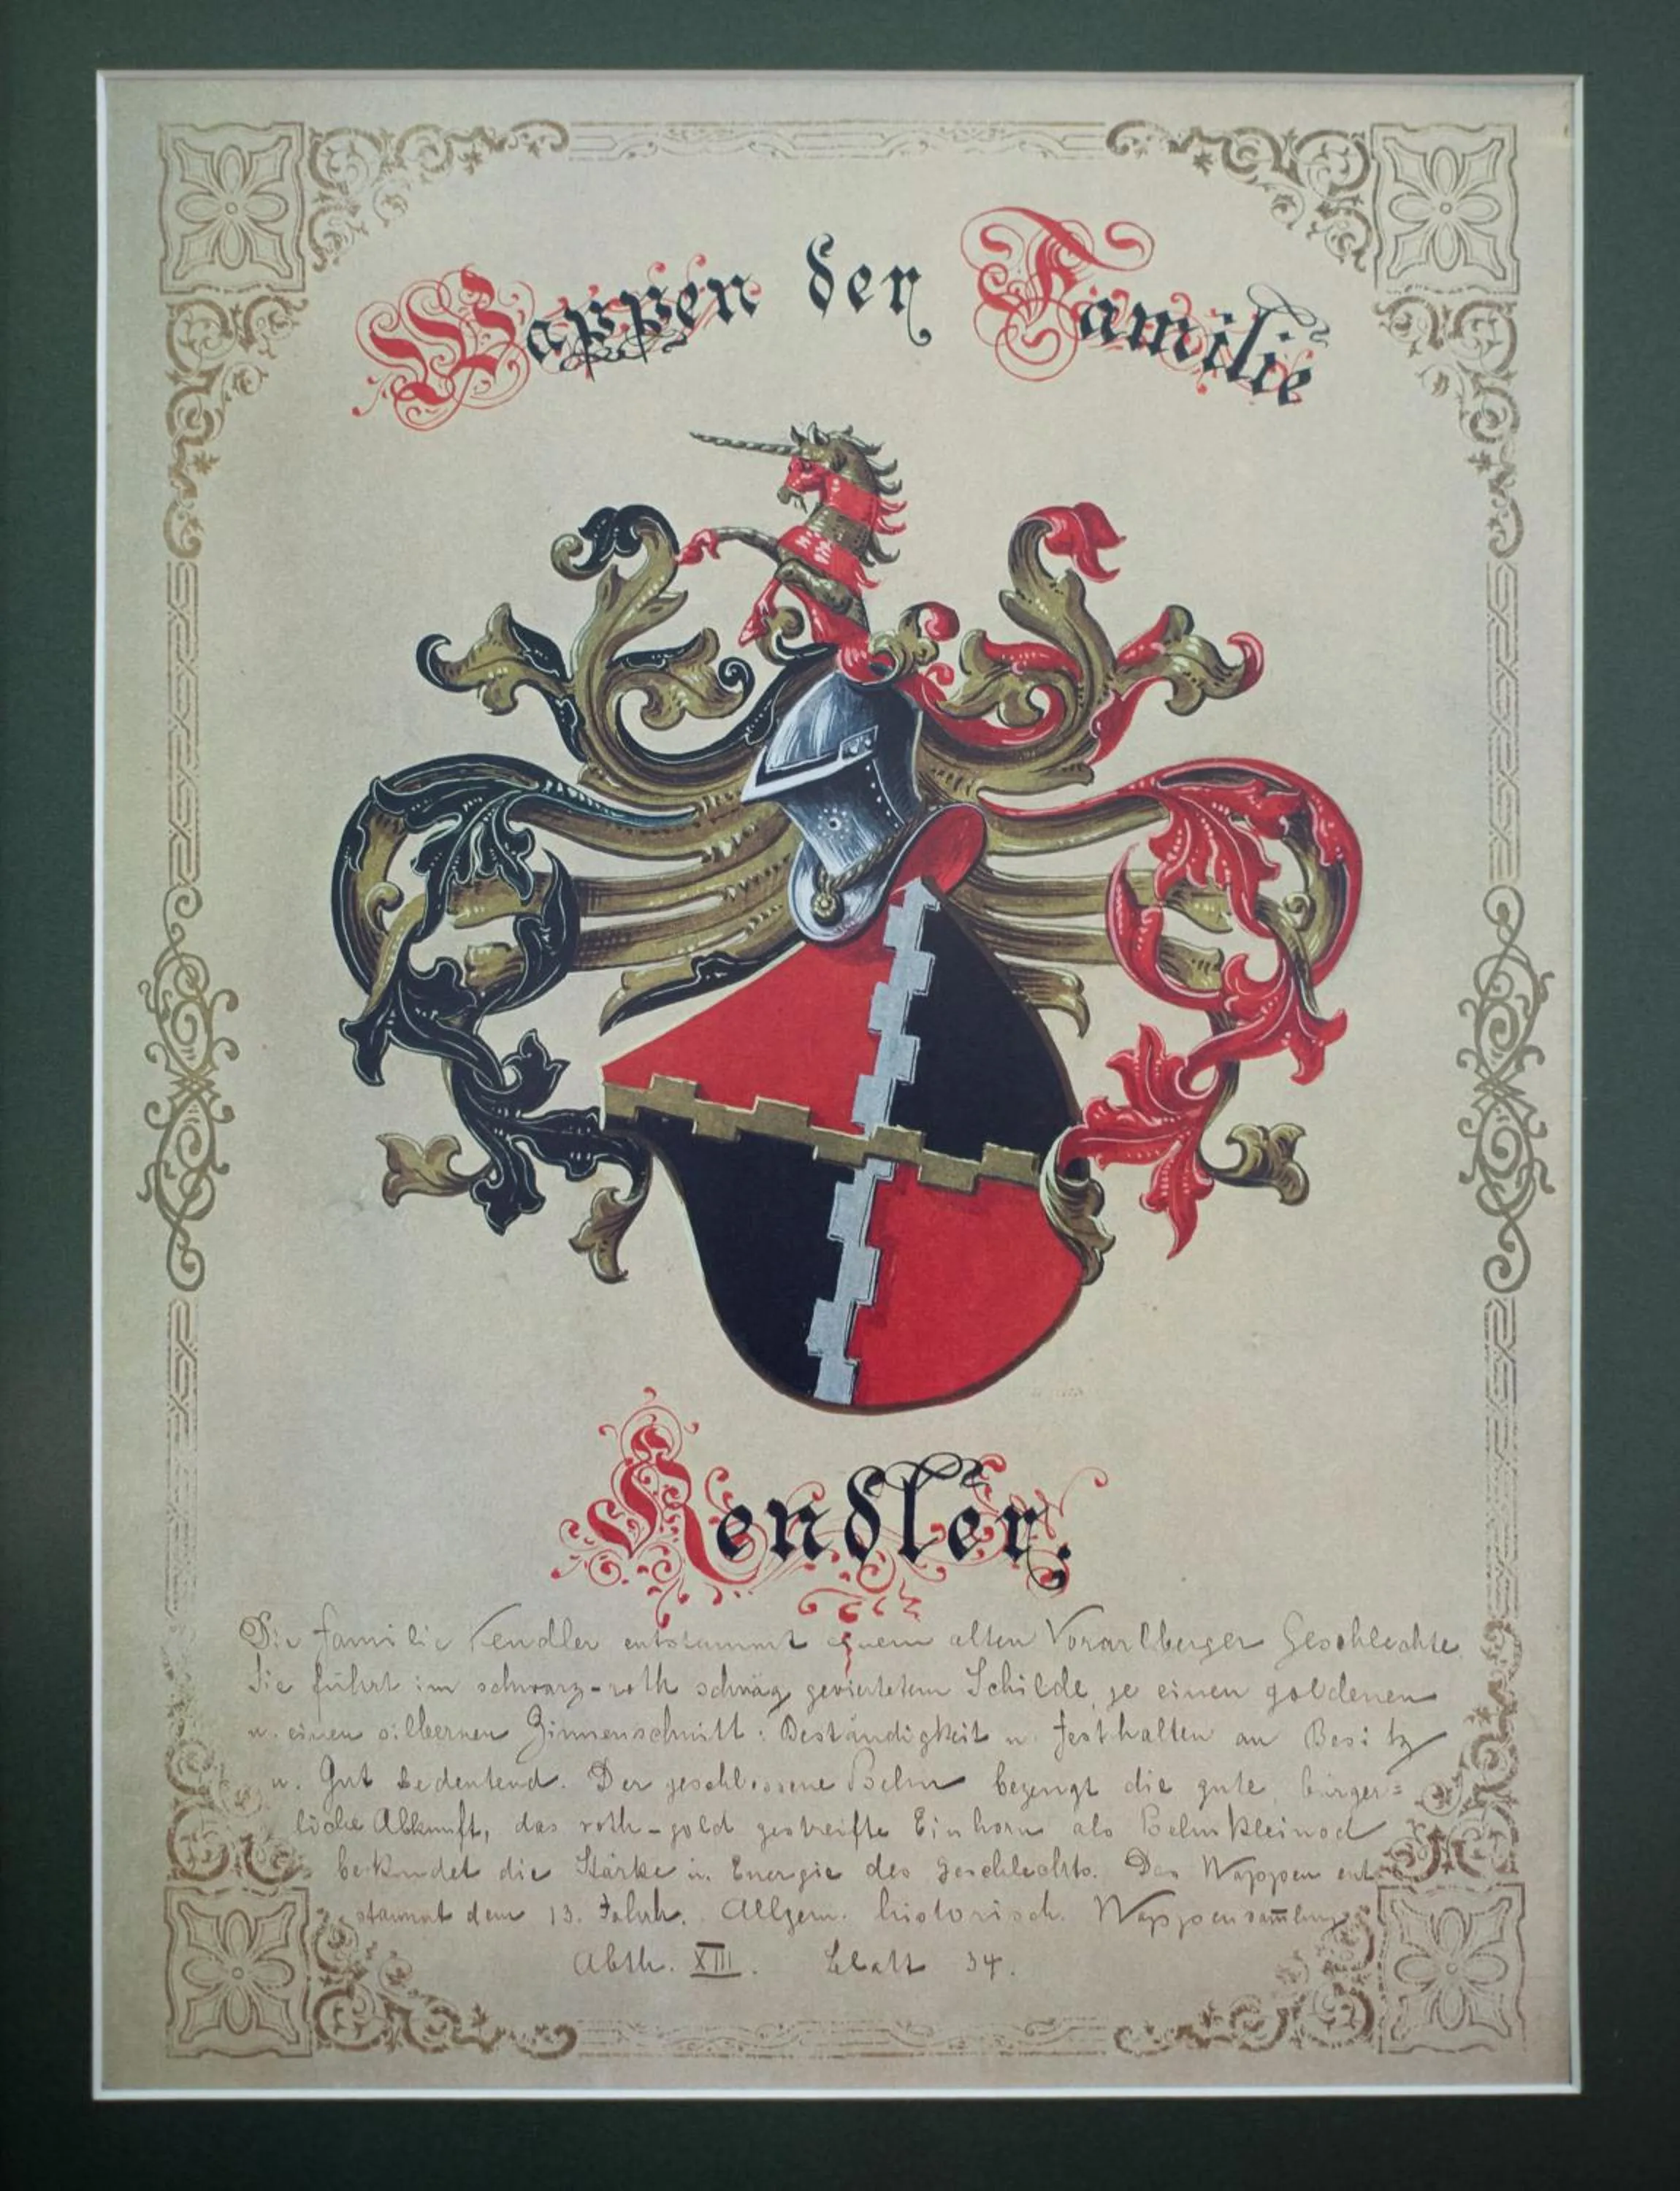 Wappen der Familie
Kendler.
Die Familie Kendler entstammt einem alten Vorarlberger Geschlechte
Sie führt im schwarz-roth schräg geviertetem Schilde, je einen goldenen
u. einen silbernen Zinnenschnitt: Beständigkeit u. Festhalten an Besitz
u. Gut bedeutend. Der geschlossene Helm bezeugt die gute, bürger=
liche Abkunft, das roth-gold gestreifte Einhorn als Helmkleinod
bekundet die Stärke u. Energie des Geschlechts. Das Wappen ent
stammt dem 13. Jahrh. Allgem. historisch. Wappensam̅lung
Abth. XIII. Blatt 34.